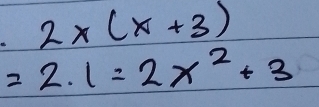 . 2x(x+3)
= 2.1 = 2x² + 3